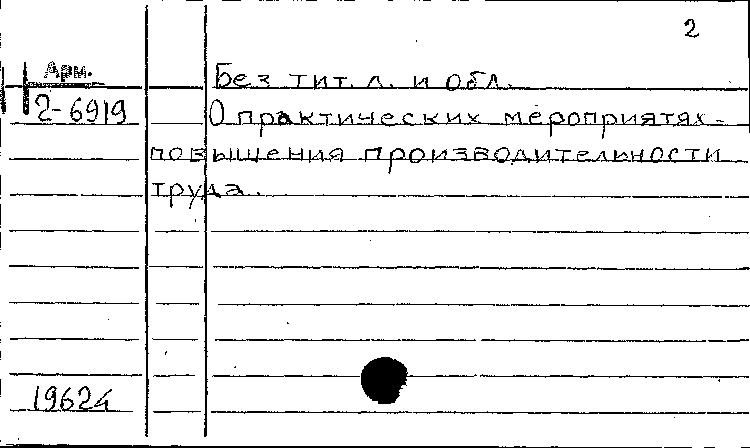 2
Арм.
2-6919
Без тит. л. и обл.
О практических мероприятях -
повышения производительности
труда.
19624